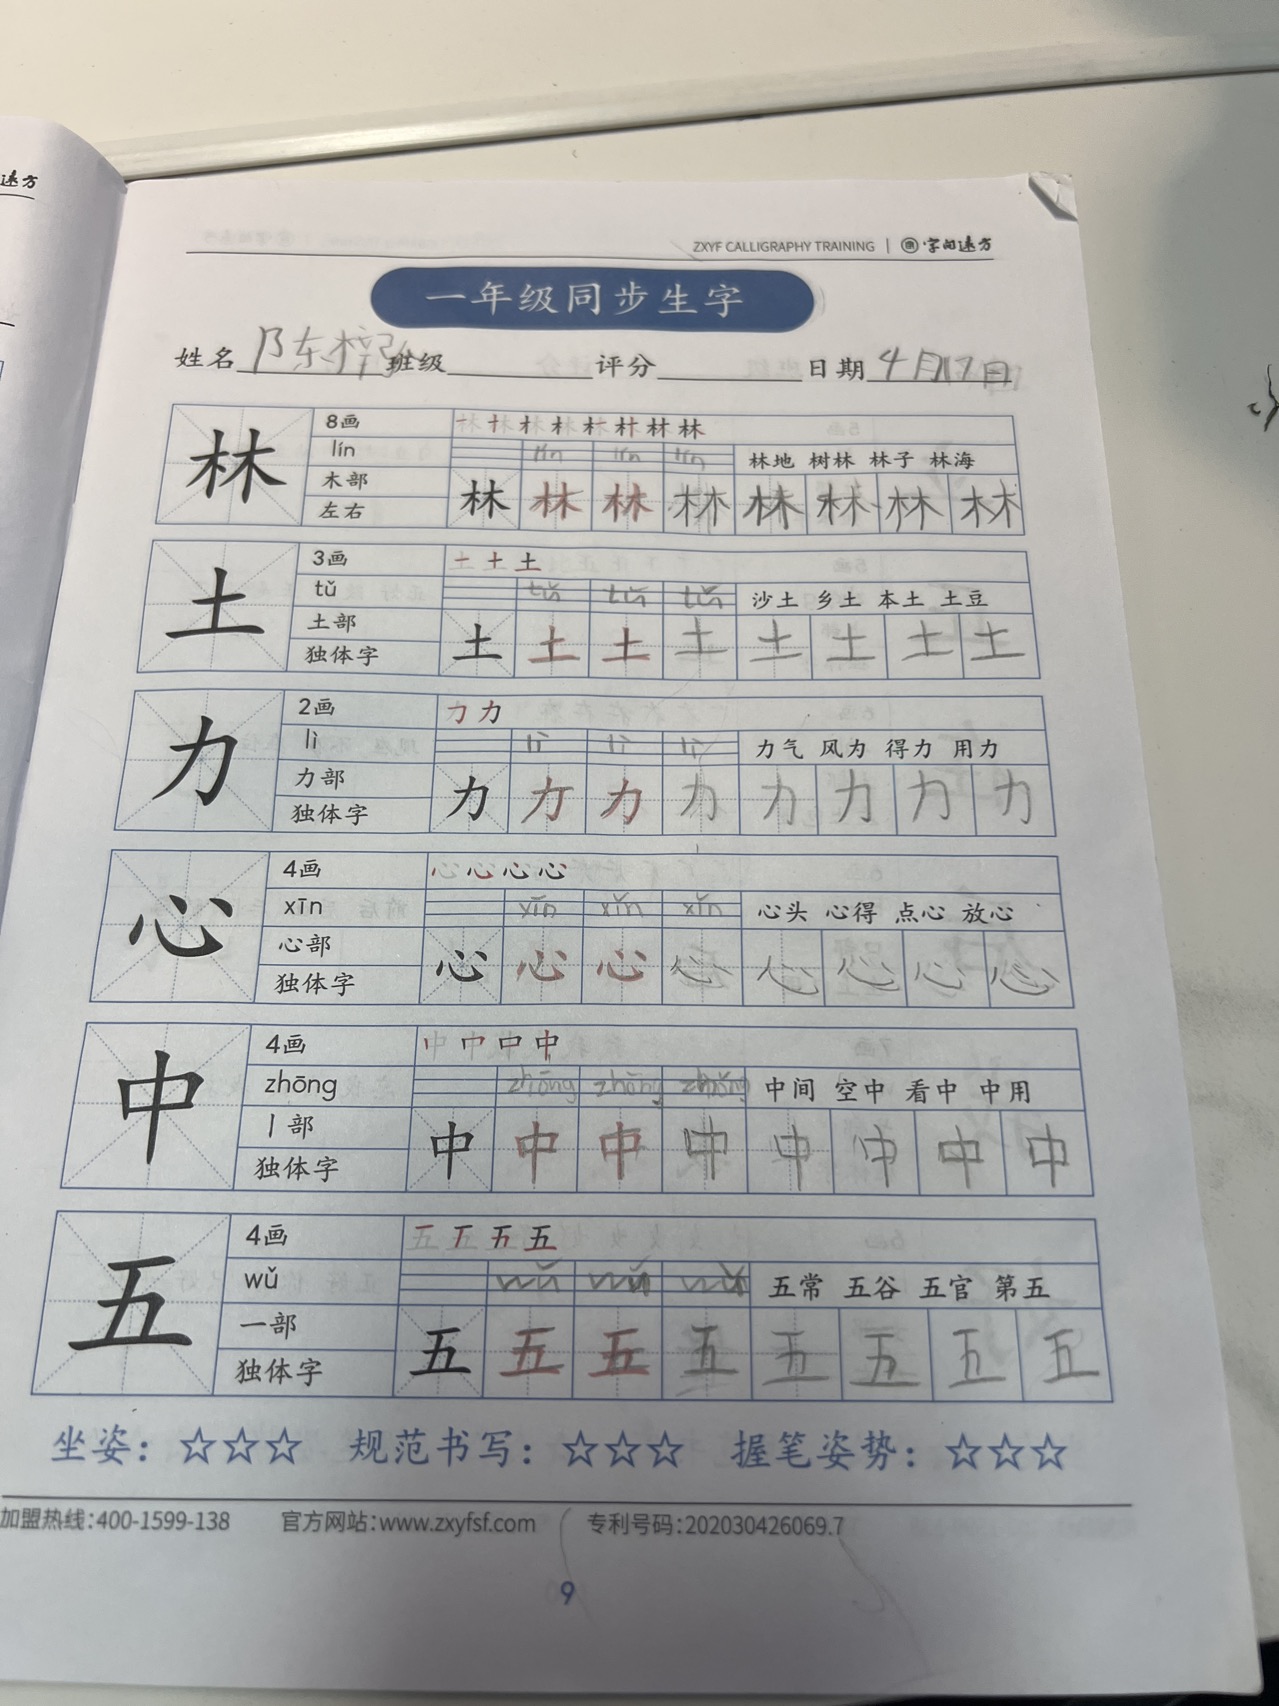 远方
ZXYF CALLIGRAPHY TRAINING | 字间远方
一年级同步生字
姓名 陈梓 班级 评分 日期 4月17日
林 8画 林 林 林 林 林 林 林 林
lín lín lín lín 林地 树林 林子 林海
木部
左右 林 林 林 林 林 林 林 林
土 3画 土 土 土
tǔ tǔ tǔ tǔ 沙土 乡土 本土 土豆
土部
独体字 土 土 土 土 土 土 土 土
力 2画 力 力
lì lì lì lì 力气 风力 得力 用力
力部
独体字 力 力 力 力 力 力 力 力
心 4画 心 心 心 心
xīn xīn xǐn xǐn 心头 心得 点心 放心
心部
独体字 心 心 心 心 心 心 心 心
中 4画 中 中 中 中
zhōng zhōng zhōng zhōng 中间 空中 看中 中用
丨部
独体字 中 中 中 中 中 中 中 中
五 4画 五 五 五 五
wǔ wǔ wǔ wǔ 五常 五谷 五官 第五
一部
独体字 五 五 五 五 五 五 五 五
坐姿：☆☆☆ 规范书写：☆☆☆ 握笔姿势：☆☆☆
加盟热线：400-1599-138 官方网站：www.zxyfsf.com 专利号码：202030426069.7
9